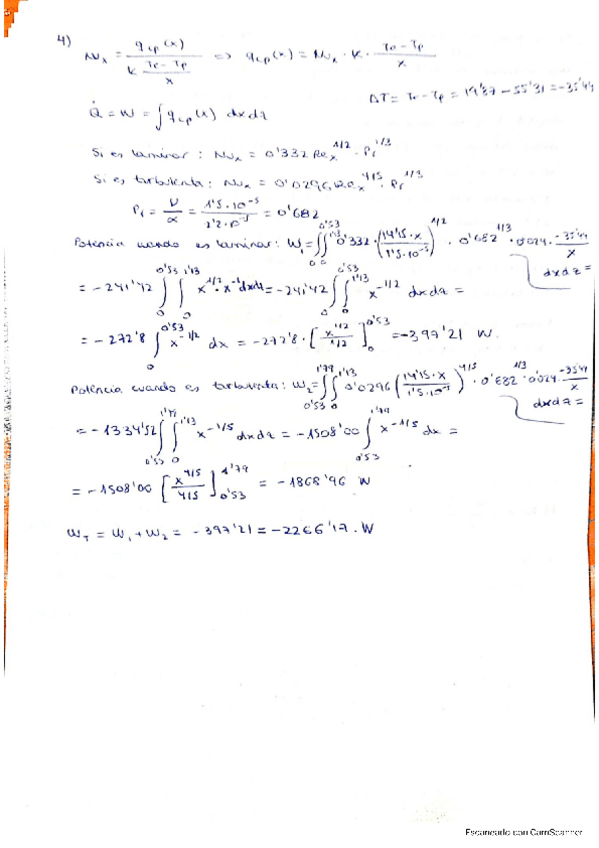 4) Nu_x = q_cp(x) / (k (Te-Tp)/x) => q_cp(x) = Nu_x · k · (Te-Tp)/x
ΔT = Te-Tp = 19'87 - 55'31 = -35'44
Q̇ = W = ∫ q_cp(x) dx dz
Si es laminar: Nu_x = 0'332 Re_x^1/2 · Pr^1/3
Si es turbulenta: Nu_x = 0'0296 Re_x^4/5 · Pr^1/3
Pr = ν/α = 1'5·10^-5 / 2'2·10^-5 = 0'682
Potencia cuando es laminar: W_1 = ∫_0^0'53 ∫_0^1'13 0'332 · (14'15·x / 1'5·10^-5)^1/2 · 0'682^1/3 · 0'024 · -35'44/x dx dz =
= -241'42 ∫_0^0'53 ∫_0^1'13 x^1/2 · x^-1 dx dz = -241'42 ∫_0^0'53 ∫_0^1'13 x^-1/2 dx dz =
= -272'8 ∫_0^0'53 x^-1/2 dx = -272'8 · [x^1/2 / 1/2]_0^0'53 = -397'21 W.
Potencia cuando es turbulenta: W_2 = ∫_0'53^1'79 ∫_0^1'13 0'0296 (14'15·x / 1'5·10^-5)^4/5 · 0'682^1/3 · 0'024 · -35'44/x dx dz =
= -1334'52 ∫_0'53 ∫_0^1'13 x^-1/5 dx dz = -1508'00 ∫_0'53^1'79 x^-1/5 dx =
= -1508'00 [x^4/5 / 4/5]_0'53^1'79 = -1868'96 W
W_T = W_1 + W_2 = -397'21 = -2266'17 · W
Escaneado con CamScanner